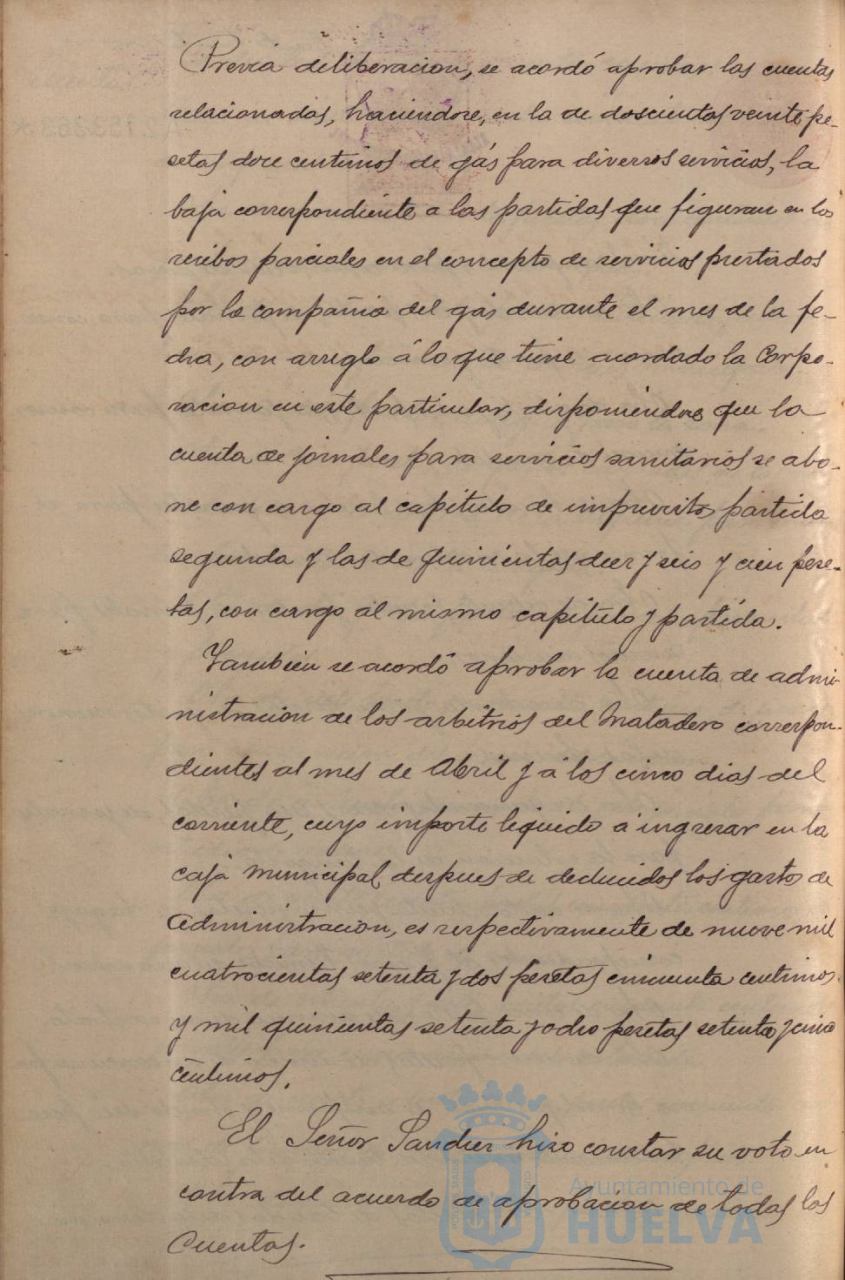 Previa deliberacion, se acordó aprobar las cuentas
relacionadas, haciendose, en la de doscientas veinte pe-
setas doce centimos de gás para diversos servicios, la
baja correspondiente a las partidas que figuran en los
recibos parciales en el concepto de servicios prestados
por la compañia del gás durante el mes de la fe-
cha, con arreglo á lo que tiene acordado la Corpo-
racion en este particular, disponiendose que la
cuenta de jornales para servicios sanitarios se abo-
ne con cargo al capitulo de imprevistos partida
segunda y las de quinientas diez y seis y cien pese-
tas, con cargo al mismo capitulo y partida.
Tambien se acordó aprobar la cuenta de admi-
nistracion de los arbitrios del Matadero correspon-
dientes al mes de Abril y á los cinco dias del
corriente, cuyo importe liquido á ingresar en la
caja Municipal, despues de deducidos los gastos de
Administracion, es respectivamente de nueve mil
cuatrocientas setenta y dos pesetas cincuenta centimos
y mil quinientas setenta y ocho pesetas setenta y cinco
centimos.
El Señor Sanchez hizo constar su voto en
contra del acuerdo de aprobacion de todas las
Cuentas.
Ayuntamiento de
HUELVA